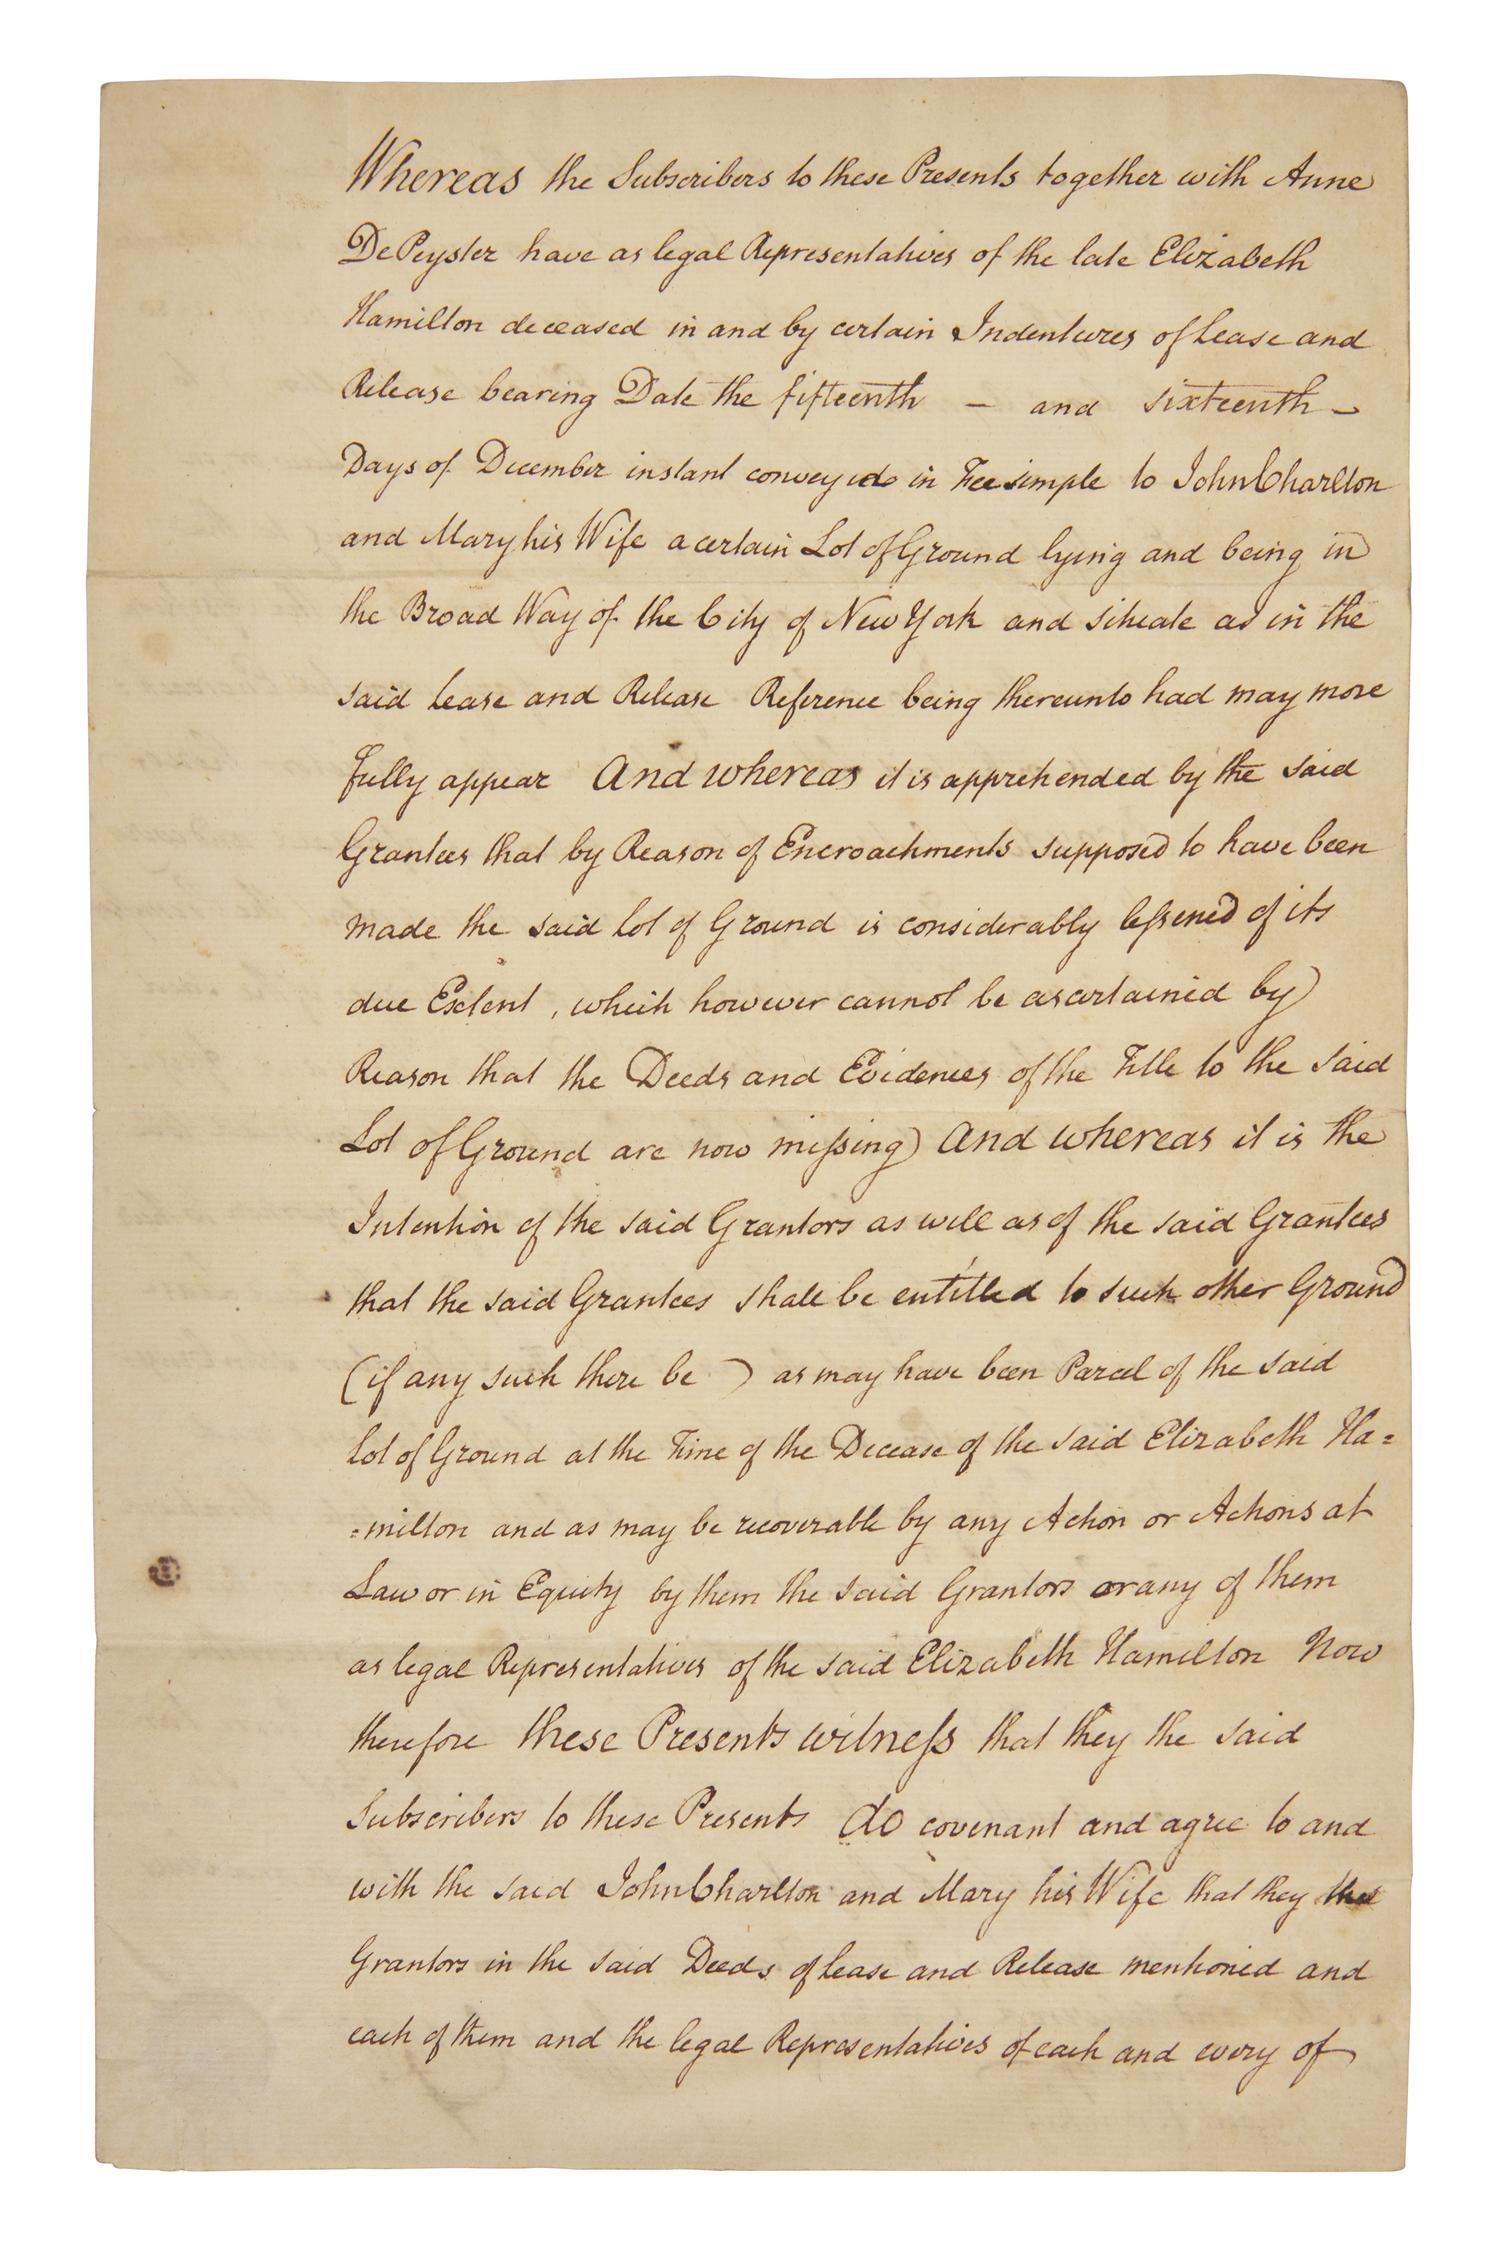 Whereas the Subscribers to these Presents together with Anne
DePeyster have as legal Representatives of the late Elizabeth
Hamilton deceased in and by certain Indentures of Lease and
Release bearing Date the fifteenth – and sixteenth –
Days of December instant conveyed in Fee simple to John Charlton
and Mary his Wife a certain Lot of Ground lying and being in
the Broad Way of the City of New York and situate as in the
said Lease and Release Reference being thereunto had may more
fully appear And whereas it is apprehended by the said
Grantees that by Reason of Encroachments supposed to have been
made the said Lot of Ground is considerably leſsened of its
due Extent, which however cannot be ascertained by
Reason that the Deeds and Evidences of the Title to the said
Lot of Ground are now miſsing) And whereas it is the
Intention of the said Grantors as well as of the said Grantees
that the said Grantees shall be entitled to such other Ground
(if any such there be) as may have been Parcel of the said
Lot of Ground at the Time of the Decease of the said Elizabeth Ha=
=milton and as may be recoverable by any Action or Actions at
Law or in Equity by them the said Grantors or any of them
as legal Representatives of the said Elizabeth Hamilton Now
therefore these Presents witneſs that they the said
Subscribers to these Presents do covenant and agree to and
with the said John Charlton and Mary his Wife that they the
Grantors in the said Deeds of Lease and Release mentioned and
each of them and the legal Representatives of each and every of